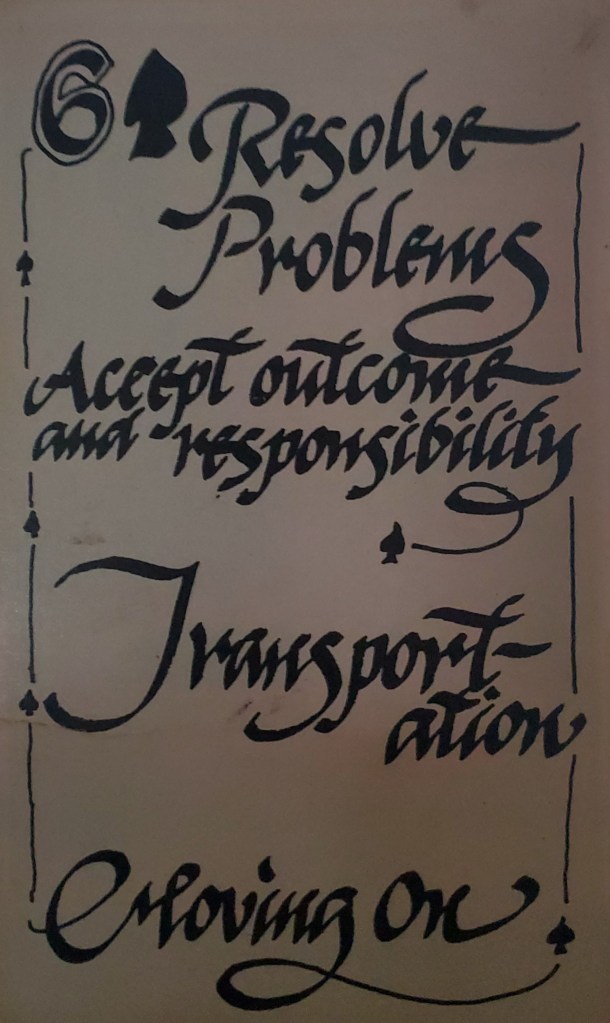 6♠ Resolve
Problems
Accept outcome
and responsibility
Transport-
ation
Moving On